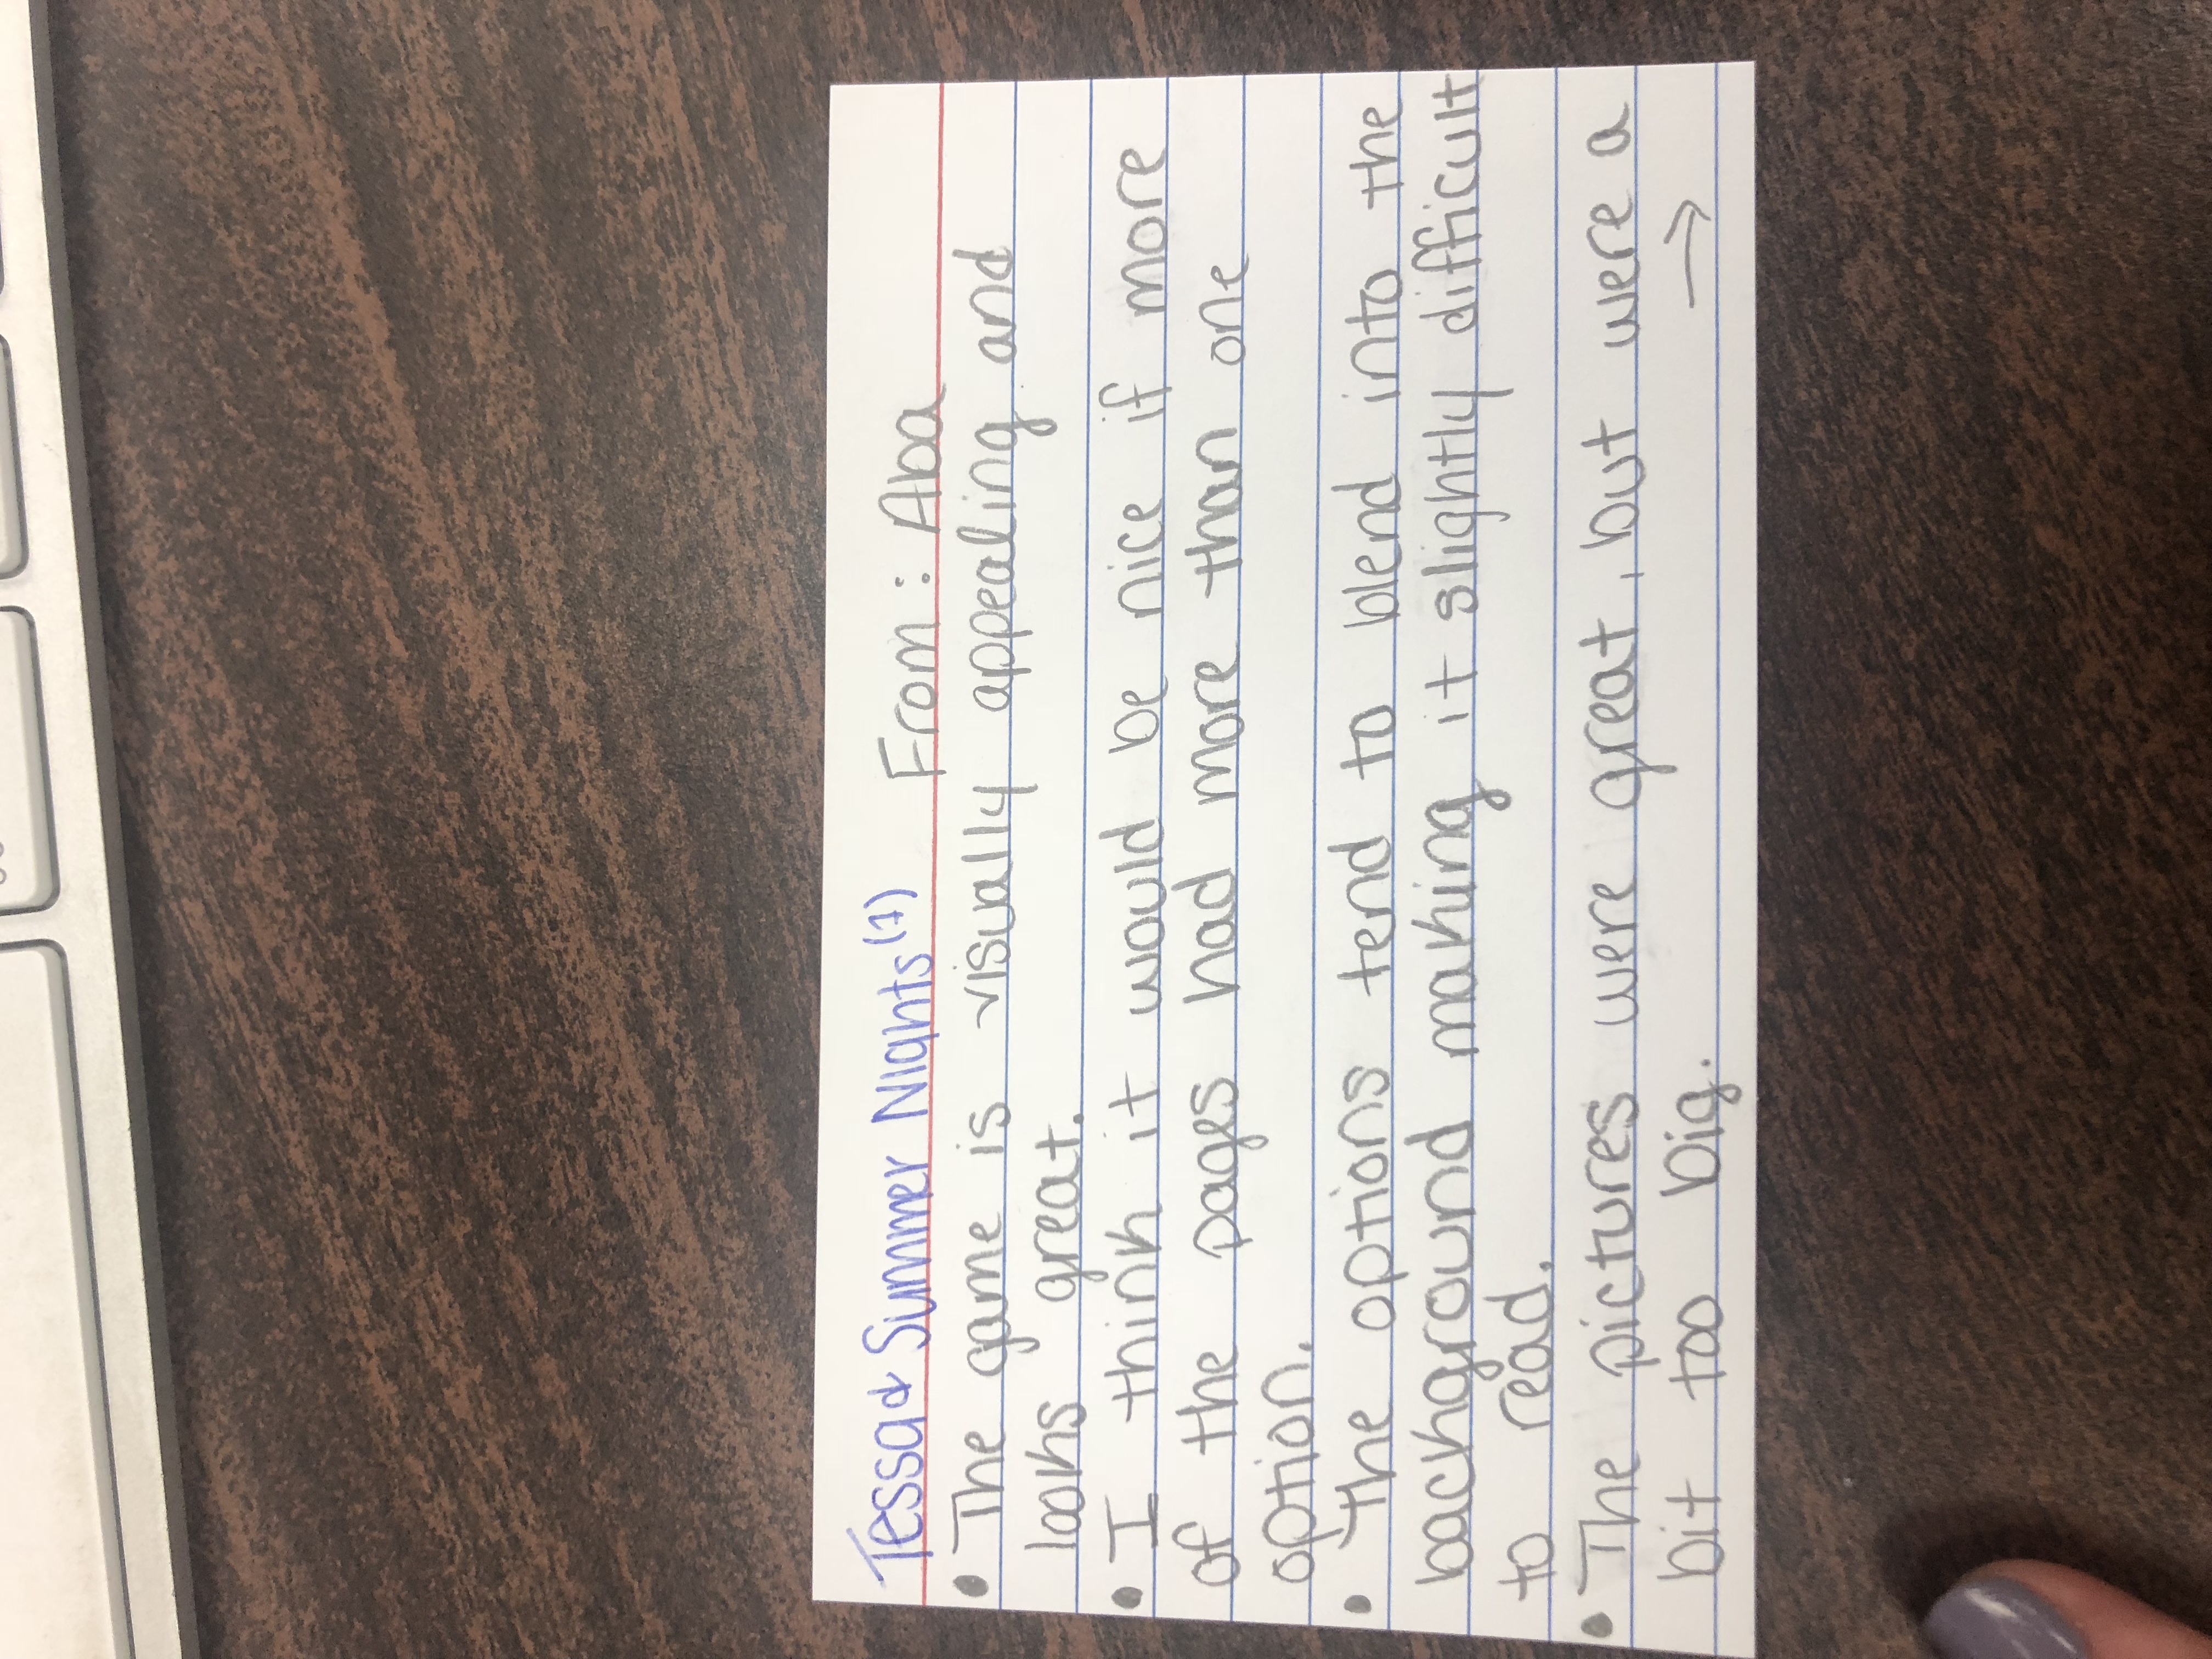 Tessa & Summer Nights (7) From: Aba
• The game is visually appealing and
looks great.
• I think it would be nice if more
of the pages had more than one
option.
• The options tend to blend into the
background making it slightly difficult
to read.
• The pictures were great, but were a
bit too big. →